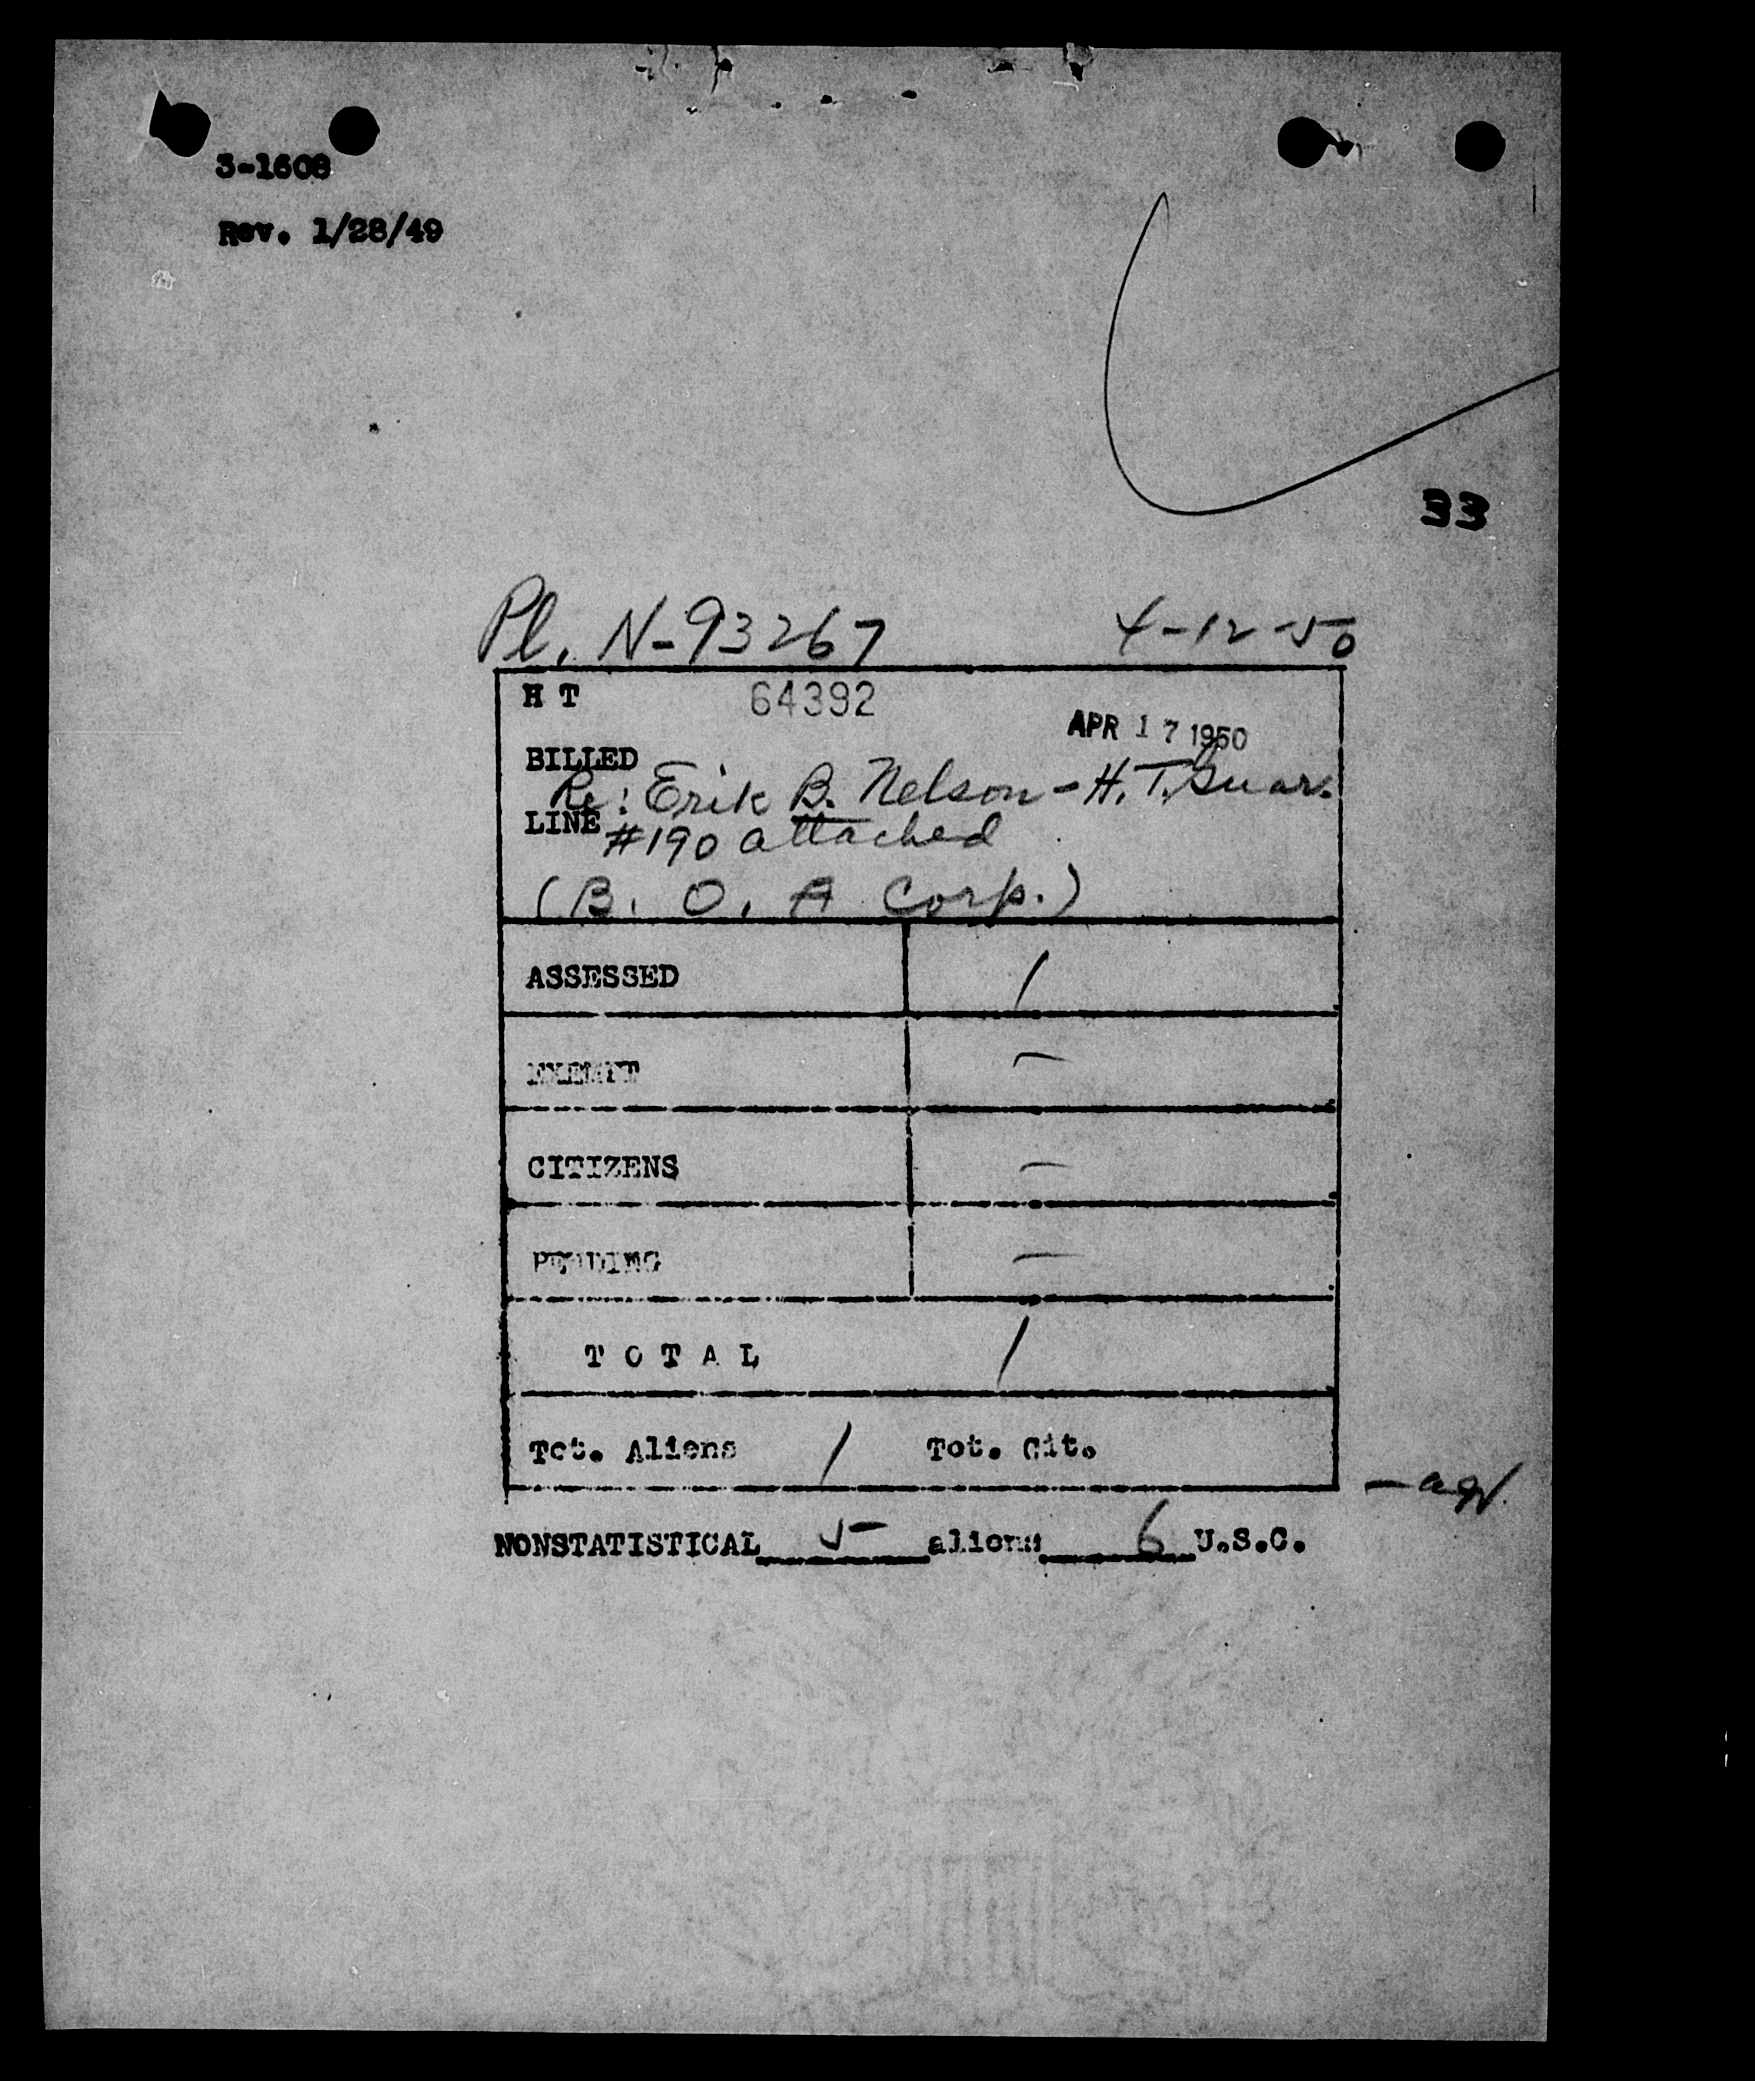 3-1608
Rev. 1/28/49
33
Pl. N-93267 4-12-50
H T 64392
APR 17 1950
BILLED
Re: Erik B. Nelson - H.T. Guar.
LINE #190 attached
(B. O. A Corp.)
ASSESSED 1
EXEMPT -
CITIZENS -
PENDING -
T O T A L 1
Tot. Aliens 1 Tot. Cit.
NONSTATISTICAL 5 aliens 6 U.S.C.